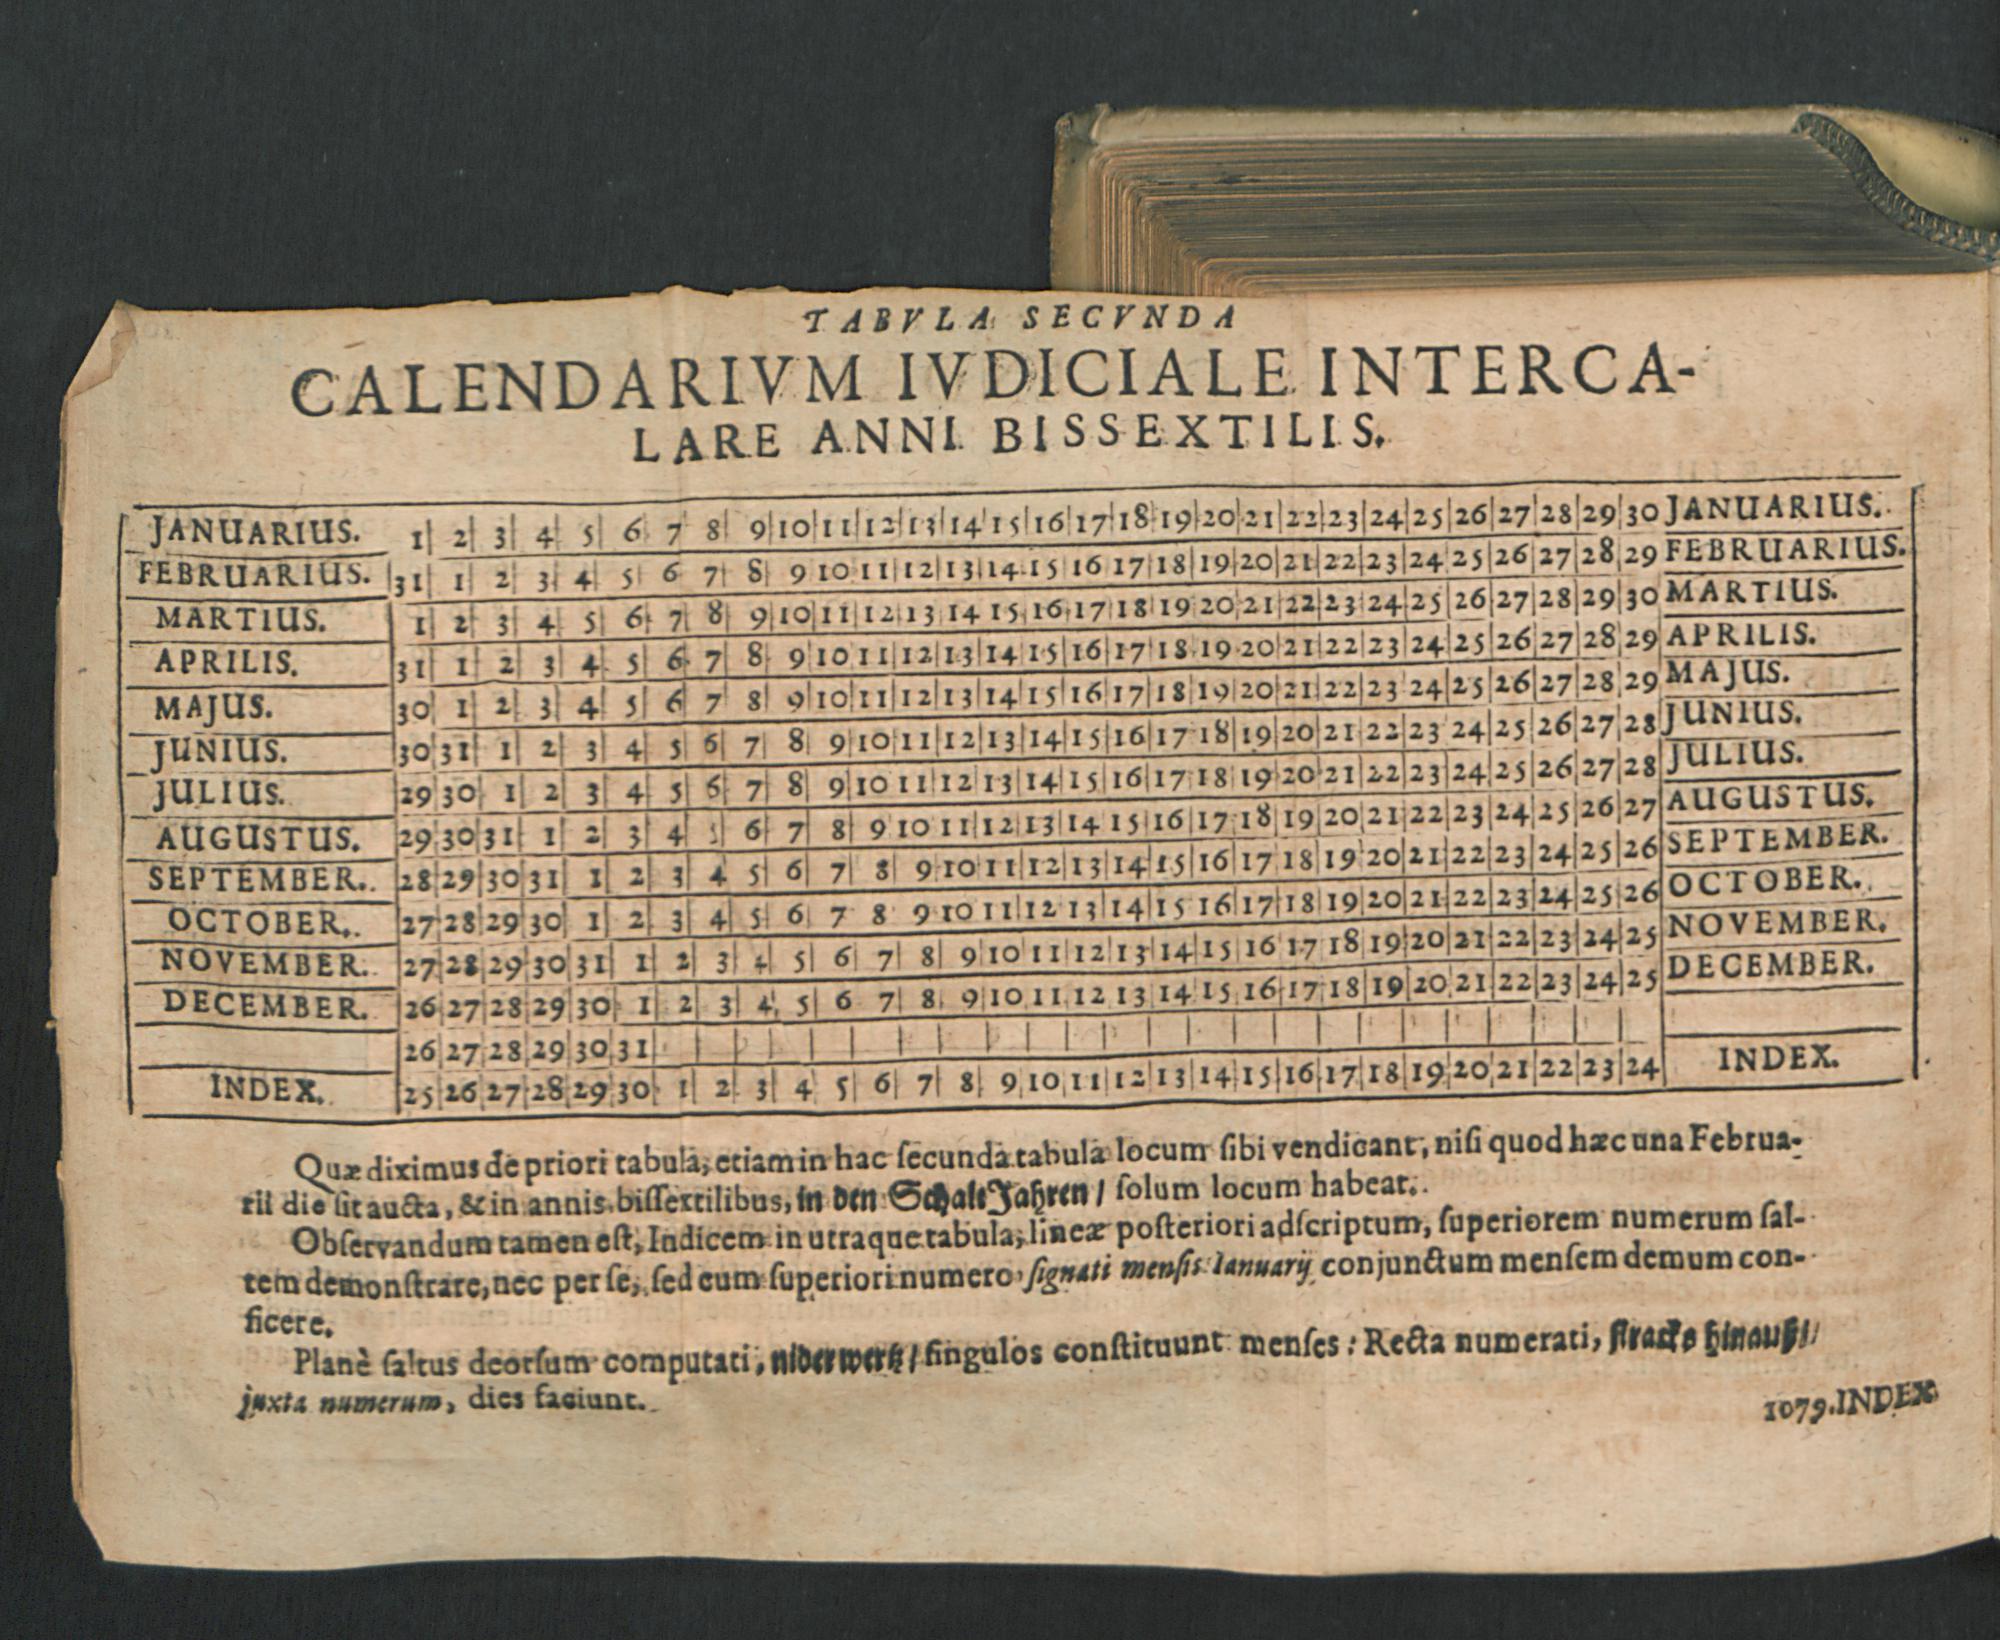 TABVLA SECVNDA
CALENDARIVM IVDICIALE INTERCA-
LARE ANNI BISSEXTILIS.
JANUARIUS. 1 2 3 4 5 6 7 8 9 10 11 12 13 14 15 16 17 18 19 20 21 22 23 24 25 26 27 28 29 30 JANUARIUS.
FEBRUARIUS. 31 1 2 3 4 5 6 7 8 9 10 11 12 13 14 15 16 17 18 19 20 21 22 23 24 25 26 27 28 29 FEBRUARIUS.
MARTIUS. 1 2 3 4 5 6 7 8 9 10 11 12 13 14 15 16 17 18 19 20 21 22 23 24 25 26 27 28 29 30 MARTIUS.
APRILIS. 31 1 2 3 4 5 6 7 8 9 10 11 12 13 14 15 16 17 18 19 20 21 22 23 24 25 26 27 28 29 APRILIS.
MAJUS. 30 1 2 3 4 5 6 7 8 9 10 11 12 13 14 15 16 17 18 19 20 21 22 23 24 25 26 27 28 29 MAJUS.
JUNIUS. 30 31 1 2 3 4 5 6 7 8 9 10 11 12 13 14 15 16 17 18 19 20 21 22 23 24 25 26 27 28 JUNIUS.
JULIUS. 29 30 1 2 3 4 5 6 7 8 9 10 11 12 13 14 15 16 17 18 19 20 21 22 23 24 25 26 27 28 JULIUS.
AUGUSTUS. 29 30 31 1 2 3 4 5 6 7 8 9 10 11 12 13 14 15 16 17 18 19 20 21 22 23 24 25 26 27 AUGUSTUS.
SEPTEMBER. 28 29 30 31 1 2 3 4 5 6 7 8 9 10 11 12 13 14 15 16 17 18 19 20 21 22 23 24 25 26 SEPTEMBER.
OCTOBER. 27 28 29 30 1 2 3 4 5 6 7 8 9 10 11 12 13 14 15 16 17 18 19 20 21 22 23 24 25 26 OCTOBER.
NOVEMBER. 27 28 29 30 31 1 2 3 4 5 6 7 8 9 10 11 12 13 14 15 16 17 18 19 20 21 22 23 24 25 NOVEMBER.
DECEMBER. 26 27 28 29 30 1 2 3 4 5 6 7 8 9 10 11 12 13 14 15 16 17 18 19 20 21 22 23 24 25 DECEMBER.
26 27 28 29 30 31
INDEX. 25 26 27 28 29 30 1 2 3 4 5 6 7 8 9 10 11 12 13 14 15 16 17 18 19 20 21 22 23 24 INDEX.
Quæ diximus de priori tabula, etiam in hac ſecunda tabula locum ſibi vendicant, niſi quod hæc una Februa-
rii die ſit aucta, & in annis biſſextilibus, in den Schalt Jahren / ſolum locum habeat.
Obſervandum tamen eſt, Indicem in utraque tabula, lineæ poſteriori adſcriptum, ſuperiorem numerum ſal-
tem demonſtrare, nec per ſe, ſed cum ſuperiori numero ſignati menſis Ianuarij conjunctum menſem demum con-
ficere.
Planè ſaltus deorſum computati, niderwertz / ſingulos conſtituunt menſes: Recta numerati, ſtracks hinauß /
juxta numerum, dies faciunt.
1079. INDEX